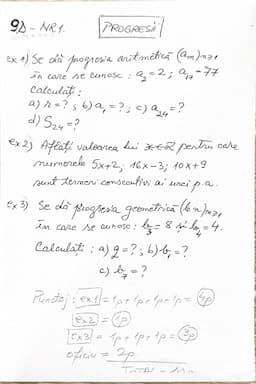 9D - NR1.
PROGRESII
ex 1) Se dă progresia aritmetică (an)n≥1
în care se cunosc: a2 = 2; a17 = 77
Calculați:
a) r = ?; b) a1 = ?; c) a24 = ?
d) S24 = ?
ex 2) Aflați valoarea lui x∈R pentru care
numerele 5x+2; 16x-3; 10x+9
sunt termeni consecutivi ai unei p.a.
ex 3) Se dă progresia geometrică (bn)n≥1
în care se cunosc: b3 = 8 și b2 = 4.
Calculați: a) q = ?; b) b1 = ?
c) b7 = ?
Punctaj: ex1 = 1p+1p+1p+1p = 4p
ex2 = 1p
ex3 = 1p+1p+1p = 3p
oficiu = 2p